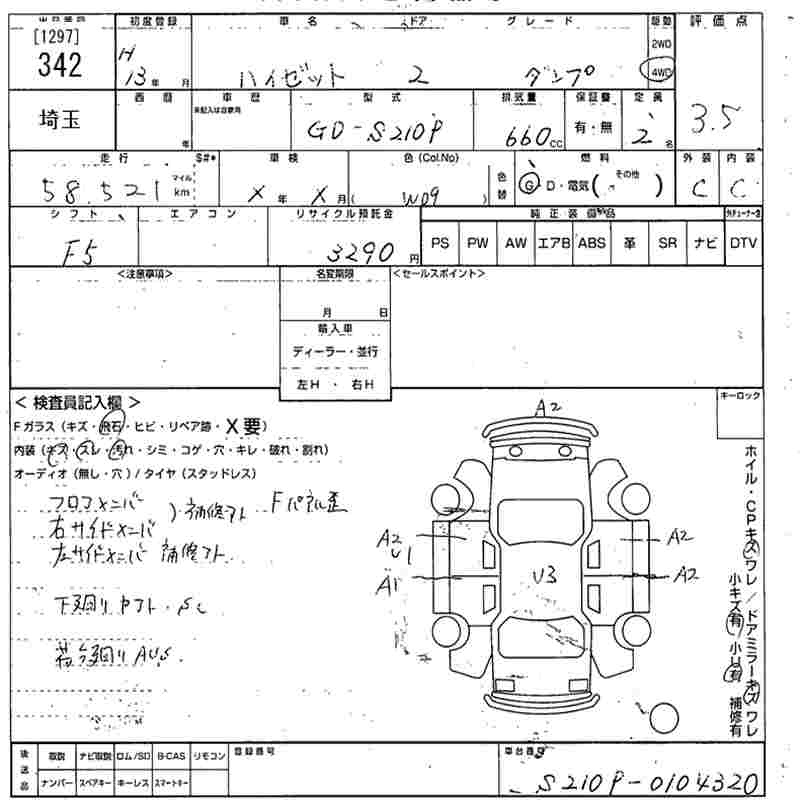 [1297]
342
初度登録
H 13 年 月
車名 ドア グレード
ハイゼット 2 ダンプ
駆動
2WD
4WD
評価点
3.5
埼玉
西暦
年
車歴
未記入は自家用
型式
GD-S210P
排気量
660 cc
保証書
有・無
定員
2 名
走行 S#*
58.521 マイル km
車検
X 年 X 月
色(Col.No)
W09
色替
燃料
G D・電気( その他 )
外装 内装
C C
シフト
F5
エアコン
リサイクル預託金
3290 円
純正装備品
PS PW AW エアB ABS 革 SR ナビ DTV
<注意事項>
名変期限
月 日
輸入車
ディーラー・並行
左H ・ 右H
<セールスポイント>
<検査員記入欄>
Fガラス(キズ・飛石・ヒビ・リペア跡・X要)
内装(キズ・スレ・汚れ・シミ・コゲ・穴・キレ・破れ・割れ)
オーディオ(無し・穴)/タイヤ(スタッドレス)
フロアメンバー
右サイドメンバ
)補修アト Fパネル歪
左サイドメンバ 補修アト
下廻り サフト・SC
荷台廻り AUS.
キーロック
A2
A2
U1
A1
U3
A2
A2
ホイル・CPキズワレ/ドアミラーキズワレ
小キズ有 小U有 補修有
後送品
取説 ナビ取説 ロム/SD B-CAS リモコン
ナンバー スペアキー キーレス スマートキー
登録番号
車台番号
S210P-0104320